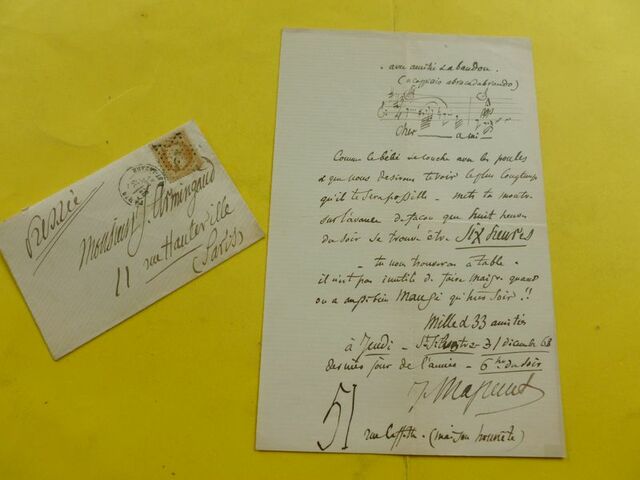 Pressée
Monsieur J. Armingaud
11
rue Hauteville
(Paris)
avec amitié & abandon.
Cher ami
Comme le bébé se couche avec les poules
& que nous desirons te voir le plus longtemps
qu'il te sera possible - mets ta montre
sur l'avance de façon que huit heures
du soir se trouve être Six heures
- tu nous trouveras à table -
il n'est pas inutile de faire maigre quand
on a aussi bien mangé qu'hier soir !!
Mille & 33 amitiés
à Jeudi - St Sylvestre 31 décembre 68
dernier jour de l'année - 6 hes du soir
J. Massenet
51
rue Laffitte - (maison honnête)